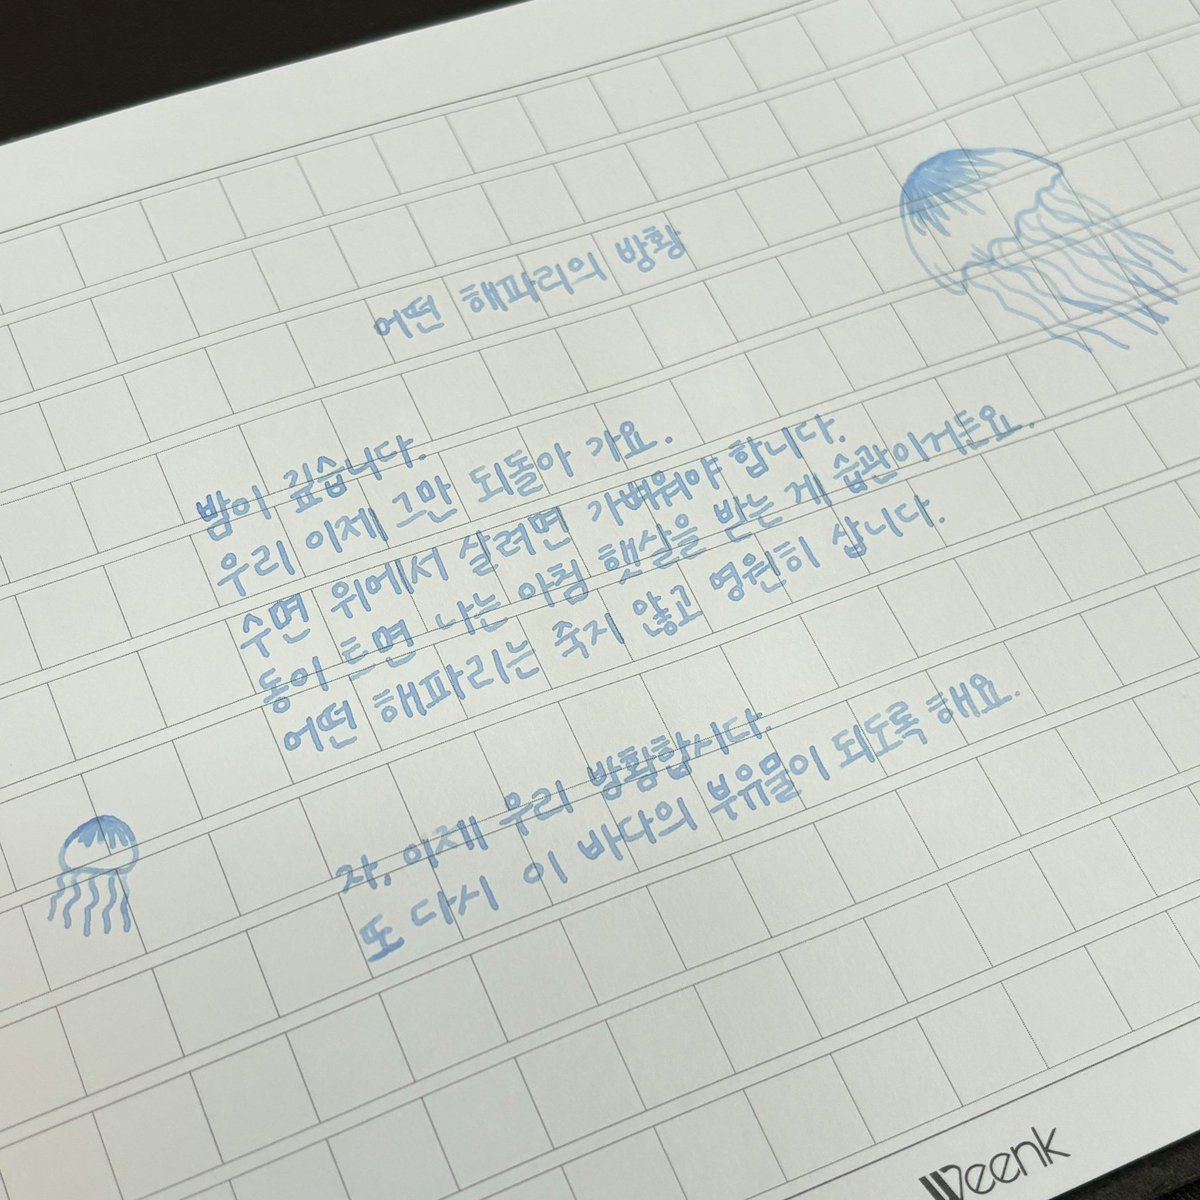 어떤 해파리의 방황
밤이 깊습니다.
우리 이제 그만 되돌아 가요.
수면 위에서 살려면 가벼워야 합니다.
동이 트면 나는 아침 햇살을 받는 게 습관이거든요.
어떤 해파리는 죽지 않고 영원히 삽니다.
자, 이제 우리 방황합시다.
또 다시 이 바다의 부유물이 되도록 해요.
Weenk